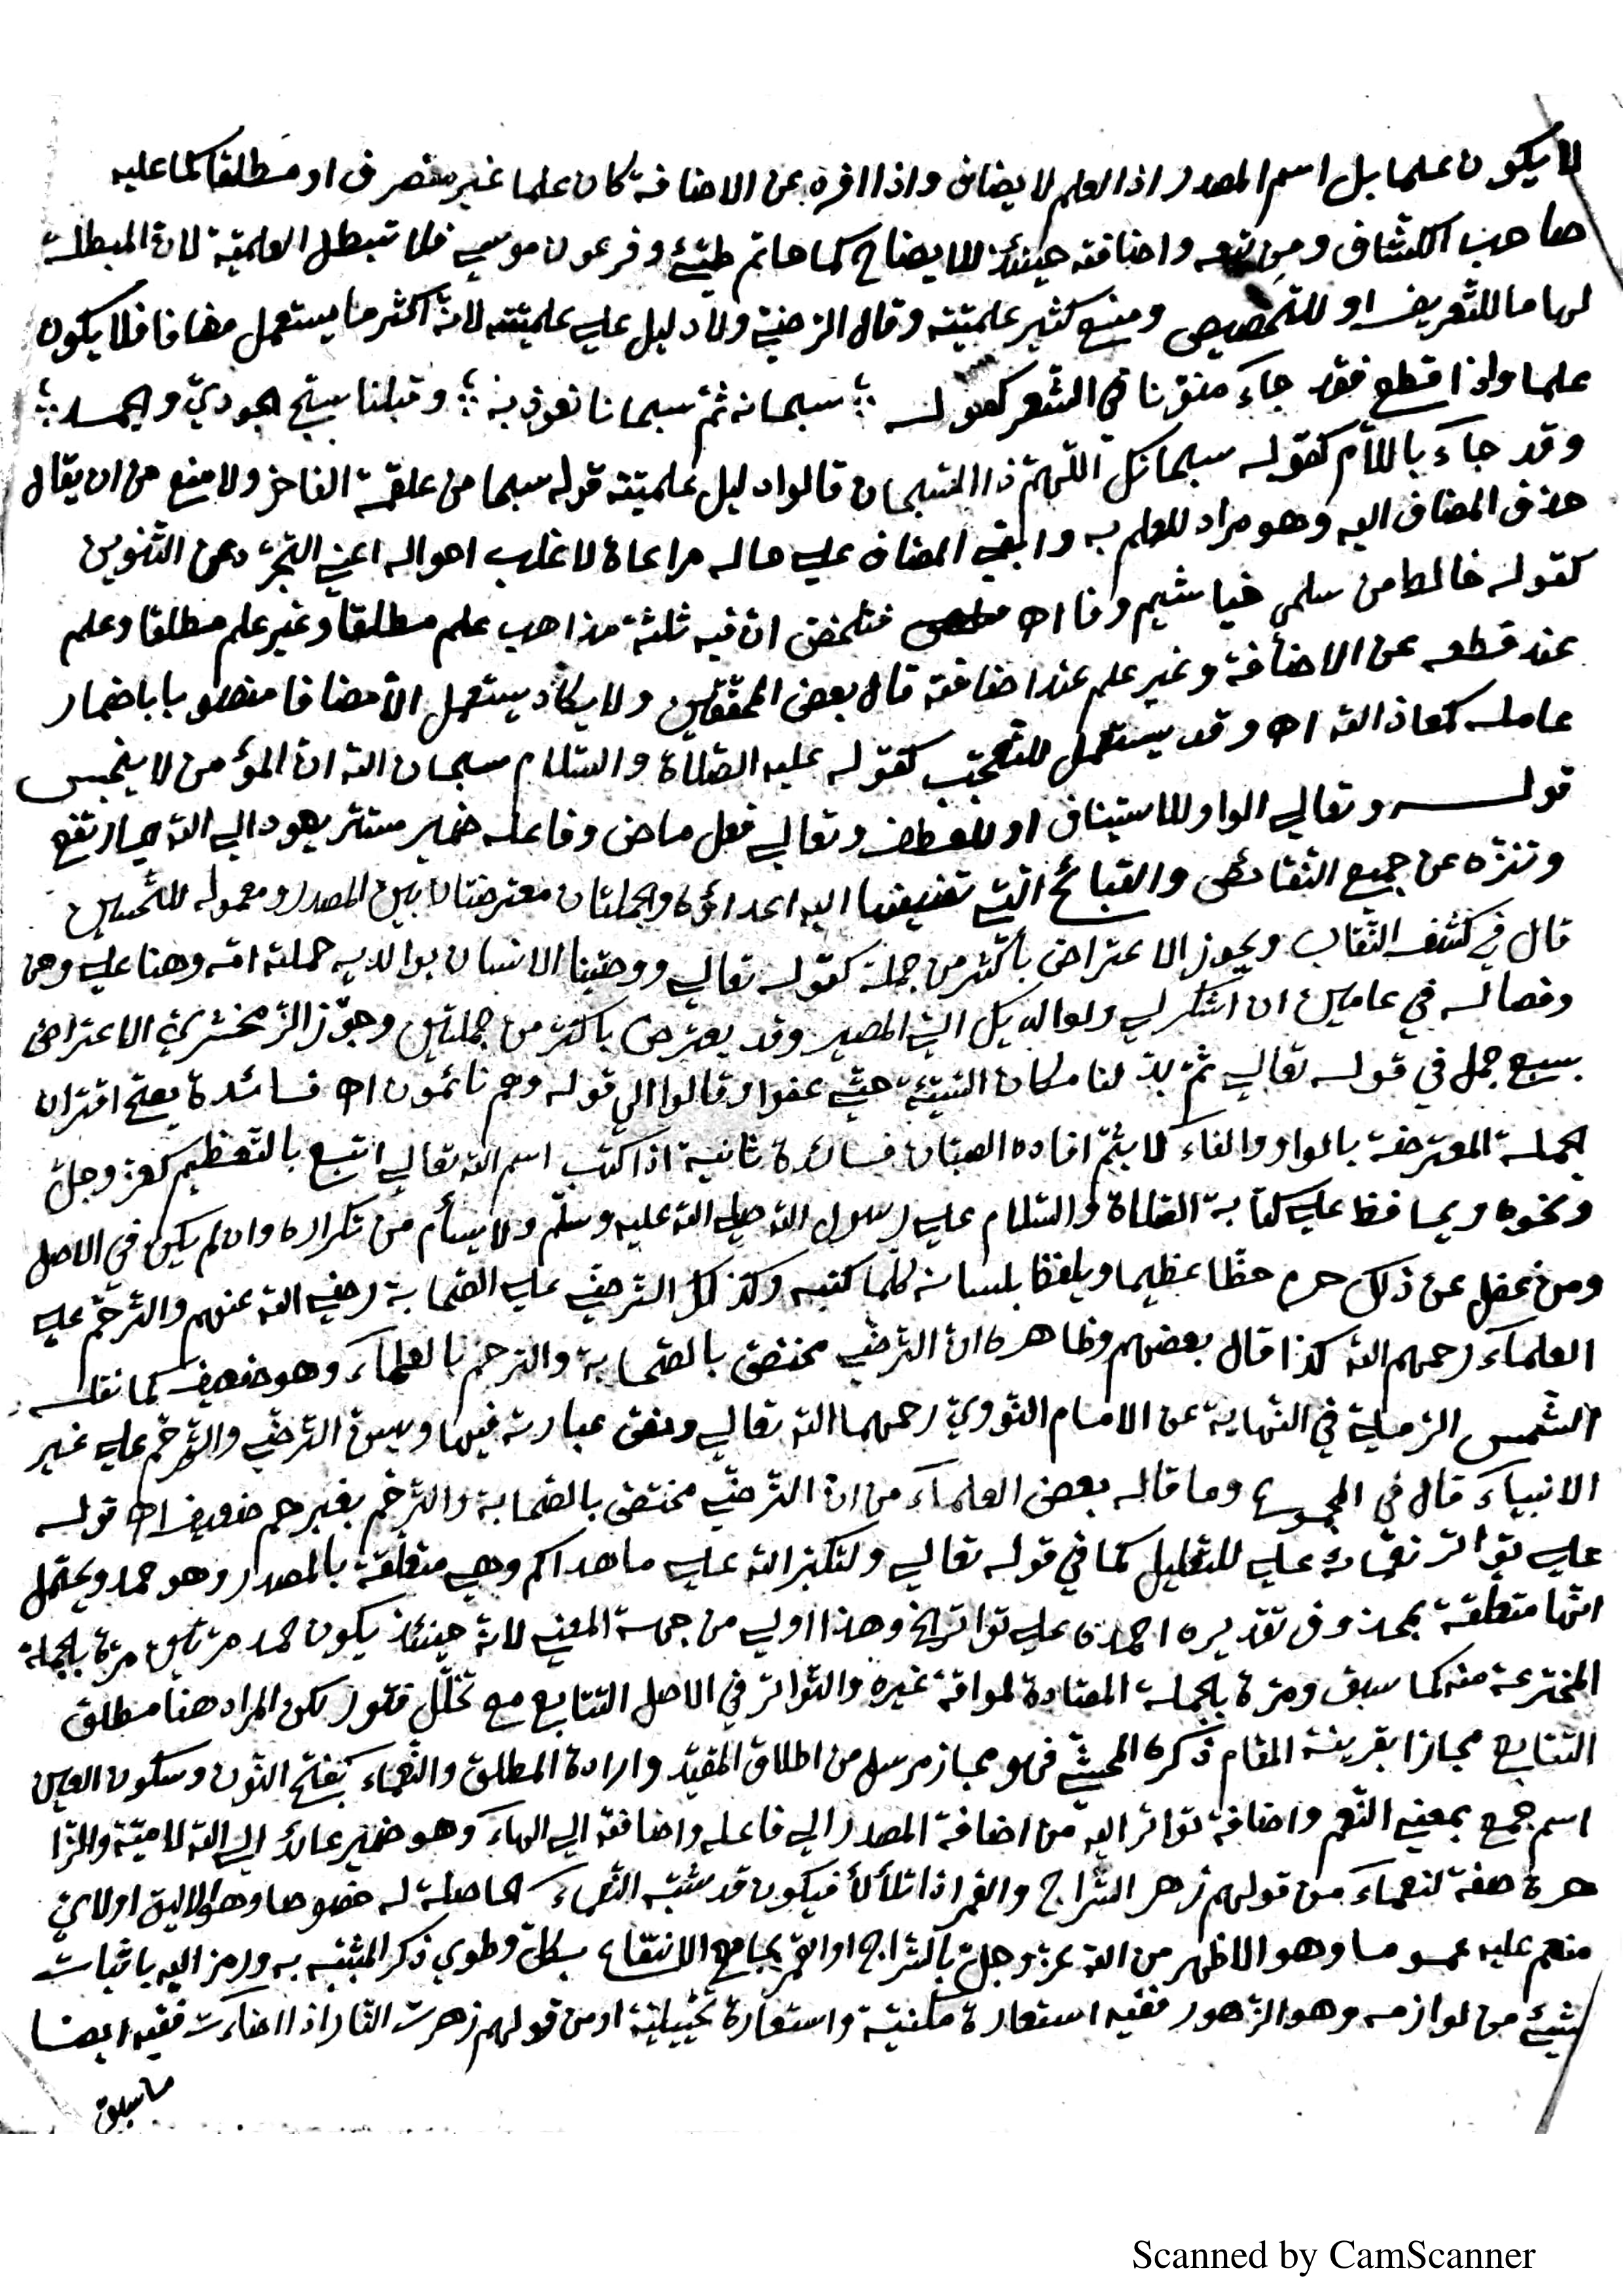 لا يكون علما بل اسم المصدر اذ العلم لا يضاف واذا افرد عن الاضافة كان علما غير منصرف او مطلقا كما عليه
صاحب الكشاف ومن تبعه واضافته حينئذ للايضاح كما حاتم طيّئ وفرعون موسى فلا تبطل العلميّة لانّ المبطلة
لها ما للتّعريف او للتّخصيص ومنع كثير علميّته وقال الرّضيّ ولا دليل على علميّته لانّه اكثر ما يستعمل مضافا فلا يكون
علما واذا قطع فقد جاء منوّنا في الشّعر كقوله سبحانه ثمّ سبحانا نعوذ به وقبلنا سبّح الجوديّ والجمد
وقد جاء باللّام كقوله سبحانك اللّهمّ ذا السّبحان قالوا دليل علميّته قوله سبحا من علقمة الفاخر ولا منع من ان يقال
حذف المضاف اليه وهو مراد للعلم به وابقي المضاف على حاله مراعاة لاغلب احواله اعني التّجرّد عن التّنوين
كقوله خالط من سلمى خياشيم وفا اه فتلخص انّ فيه ثلثة مذاهب علم مطلقا وغير علم مطلقا وعلم
عند قطعه عن الاضافة وغير علم عند اضافته قال بعض المحقّقين ولا يكاد يستعمل الّا مضافا منصوبا باضمار
عامله كمعاذ الله اه وقد يستعمل للتّعجّب كقوله عليه الصّلاة والسّلام سبحان الله انّ المؤمن لا ينجس
قوله وتعالى الواو للاستيناف او للعطف وتعالى فعل ماض وفاعله ضمير مستتر يعود الى الله اي ارتفع
وتنزّه عن جميع النّقائص والقبائح الّتي تضيفها اليه اعداؤه والجملتان معترضتان بين المصدر ومعموله للتّحسين
قال في كشف النّقاب ويجوز الاعتراض باكثر من جملة كقوله تعالى ووصّينا الانسان بوالديه حملته امّه وهنا على وهن
وفصاله في عامين ان اشكر لي ولوالديك اليّ المصير وقد يعترض باكثر من جملتين وجوّز الزّمخشريّ الاعتراض
بسبع جمل في قوله تعالى ثمّ بدّلنا مكان السّيّئة حتّى عفوا وقالوا الى قوله وهم نائمون اه فائدة يصحّ اقتران
الجملة المعترضة بالواو والفاء لا بثمّ افاده الصبّان فائدة ثانية اذا كتب اسم الله تعالى اتبع بالتّعظيم كعزّ وجلّ
ونحوه ويحافظ على كتابة الصّلاة والسّلام على رسول الله صلى الله عليه وسلّم ولا يسأم من تكراره وان لم يكن في الاصل
ومن غفل عن ذلك حرم حظّا عظيما ويلفظ بلسانه كلّما كتبه وكذلك التّرضّي على الصّحابة رضي الله عنهم والتّرحّم على
العلماء رحمهم الله كذا قال بعضهم وظاهره انّ التّرضّي مختصّ بالصّحابة والترحّم بالعلماء وهو ضعيف كما نقله
الشّمس الرّمليّ في النّهاية عن الامام النّوويّ رحمهما الله تعالى ونصّ عبارته فيها ويسنّ التّرضّي والتّرحّم على غير
الانبياء قال في المجموع وما قاله بعض العلماء من انّ التّرضّي مختصّ بالصّحابة والتّرحّم بغيرهم ضعيف اه قوله
على تواتر نعمائه على للتّعليل كما في قوله تعالى ولتكبّروا الله على ما هداكم وهي متعلّقة بالمصدر وهو حمد ويحتمل
انّها متعلّقة بمحذوف تقديره احمده على تواتر الخ وهذا اولى من جهة المعنى لانّه حينئذ يكون حمد مرّتين مرّة بالجملة
المخترعة منه كما سبق ومرّة بالجملة المعتادة لموافقة غيره والتّواتر في الاصل التّتابع مع تخلّل فتور لكن المراد هنا مطلق
التّتابع مجازا بقرينة المقام ذكره المحشّي فهو مجاز مرسل من اطلاق المقيّد وارادة المطلق والنّعماء بفتح النّون وسكون العين
اسم جمع بمعنى النّعم واضافة تواتر اليه من اضافة المصدر الى فاعله واضافته الى الهاء وهو ضمير عائد الى الله لاميّة والزّا
هرة صفة لنعماء من قولهم زهر السّراج والقمر اذا تلألأ فيكون قد شبّه النّعماء الحاصلة له خصوصا وهو الاليق او لايّ
منعم عليه عموما وهو الاظهر من الله عزّ وجلّ بالسّراج او القمر بجامع الانتفاع بكلّ وطوي ذكر المشبّه به ورمز اليه باثبات
شيئ من لوازمه وهو الزّهور ففيه استعارة مكنيّة واستعارة تخييليّة او من قولهم زهرت النّار اذا اضاءت ففيه ايضا
ما سبق
Scanned by CamScanner